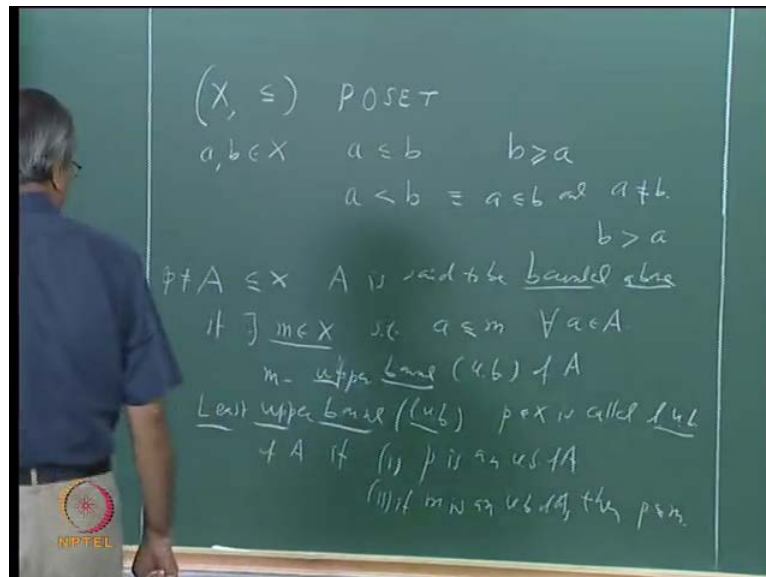 (X, ≤) POSET
a, b ∈ X a ≤ b b ≥ a
a < b ≡ a ≤ b and a ≠ b.
b > a
φ ≠ A ⊆ X A is said to be bounded above
if ∃ m ∈ X s.t. a ≤ m ∀ a ∈ A.
m - upper bound (u.b) of A
Least upper bound (lub) p ∈ X is called lub
of A if (i) p is an ub of A
(ii) if m is an ub of A, then p ≤ m.
NPTEL